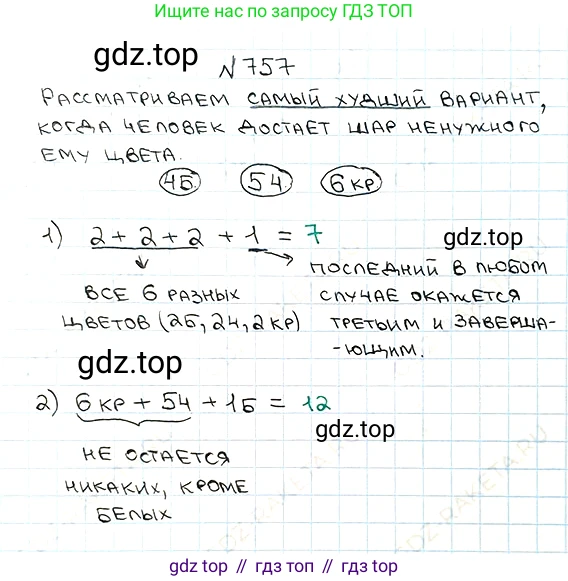 Ищите нас по запросу ГДЗ ТОП
gdz.top
№757
РАССМАТРИВАЕМ САМЫЙ ХУДШИЙ ВАРИАНТ,
КОГДА ЧЕЛОВЕК ДОСТАЕТ ШАР НЕНУЖНОГО
ЕМУ ЦВЕТА.
4Б 5Ч 6 КР
1) 2 + 2 + 2 + 1 = 7
gdz.top
ВСЕ 6 РАЗНЫХ
ЦВЕТОВ (2Б, 2Ч, 2 КР)
ПОСЛЕДНИЙ В ЛЮБОМ
СЛУЧАЕ ОКАЖЕТСЯ
ТРЕТЬИМ И ЗАВЕРША-
-ЮЩИМ.
gdz.top
2) 6 КР + 5Ч + 1Б = 12
gdz.top
НЕ ОСТАЕТСЯ
НИКАКИХ, КРОМЕ
БЕЛЫХ
GDZ-RAKETA.RU
gdz.top // gdz.top // gdz.top